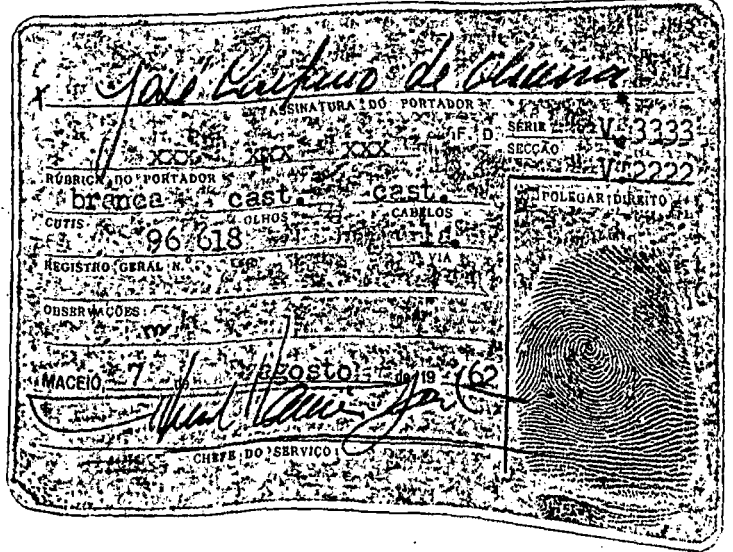 José de Oliveira
ASSINATURA DO PORTADOR
F. D. SERIE V-3333
SECÇÃO V-2222
xxx xxx xxx
RÚBRICA DO PORTADOR
branca cast. cast.
CUTIS OLHOS CABELOS
POLEGAR DIREITO
96 618 1a.
REGISTRO GERAL N.º VIA
OBSERVAÇÕES:
MACEIÓ, 7 de agosto de 19 62
CHEFE DO SERVIÇO